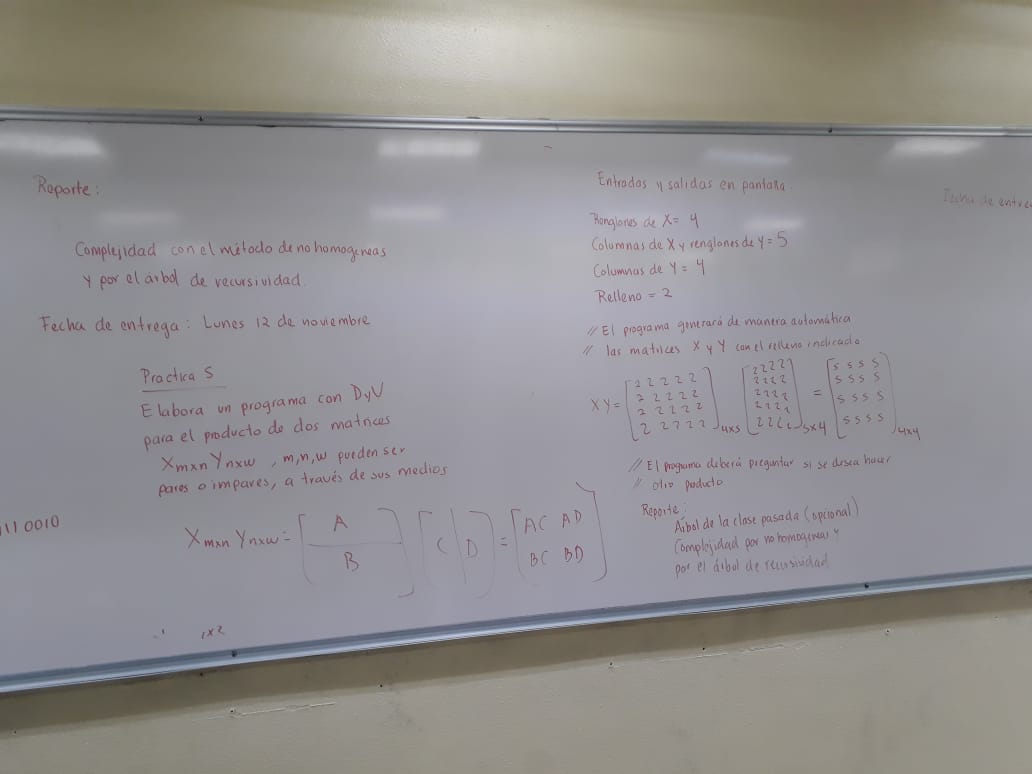 Reporte:
Complejidad con el método de no homogeneas
y por el árbol de recursividad.
Fecha de entrega: Lunes 12 de noviembre
Practica 5
Elabora un programa con DyV
para el producto de dos matrices
Xmxn Ynxw , m,n,w pueden ser
pares o impares, a través de sus medios
Xmxn Ynxw = [A / B] [C | D] = [AC AD
BC BD]
1110010
1x2
Entradas y salidas en pantalla.
Renglones de X= 4
Columnas de X y renglones de Y= 5
Columnas de Y = 4
Relleno = 2
// El programa generará de manera automática
// las matrices X y Y con el relleno indicado
XY = [2 2 2 2 2
2 2 2 2 2
2 2 2 2 2
2 2 2 2 2] 4x5
[2 2 2 2
2 2 2 2
2 2 2 2
2 2 2 2
2 2 2 2] 5x4
= [s s s s
s s s s
s s s s
s s s s] 4x4
// El programa deberá preguntar si se desea hacer
// otro producto
Reporte:
Árbol de la clase pasada (opcional)
Complejidad por no homogeneas y
por el árbol de recursividad
Fecha de entre